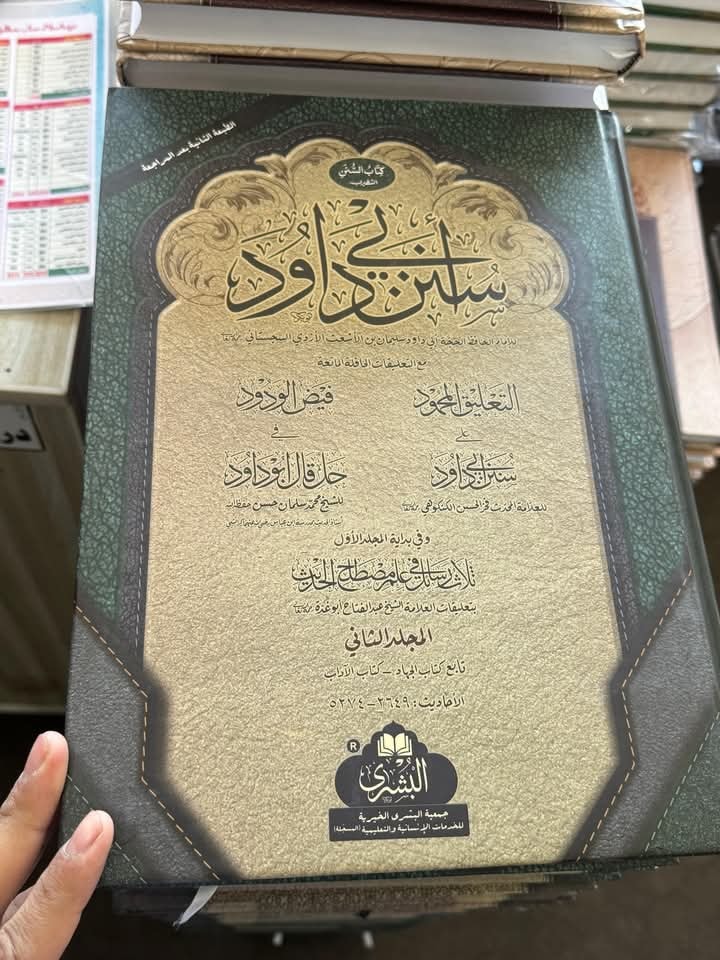 الطبعة الثانية بعد المراجعة
كتاب السنن
سنن أبي داود
للإمام الحافظ الحجة أبي داود سليمان بن الأشعث الأزدي السجستاني
مع التعليقات الحافلة الماتعة
التعليق المحمود
على
سنن أبي داود
للعلامة المحدث فخر الحسن الكنكوهي
فيض الودود
في
حل قال أبو داود
للشيخ محمد سلمان حسن حفظه الله
وفي بداية المجلد الأول
ثلاث رسائل في علم مصطلح الحديث
بتعليقات العلامة الشيخ عبد الفتاح أبو غدة
المجلد الثاني
تابع كتاب الجهاد – كتاب الآداب
الأحاديث: ٢٦٤٩-٥٢٧٤
®
البشرى
جمعية البشرى الخيرية
للخدمات الإنسانية والتعليمية (المسجلة)